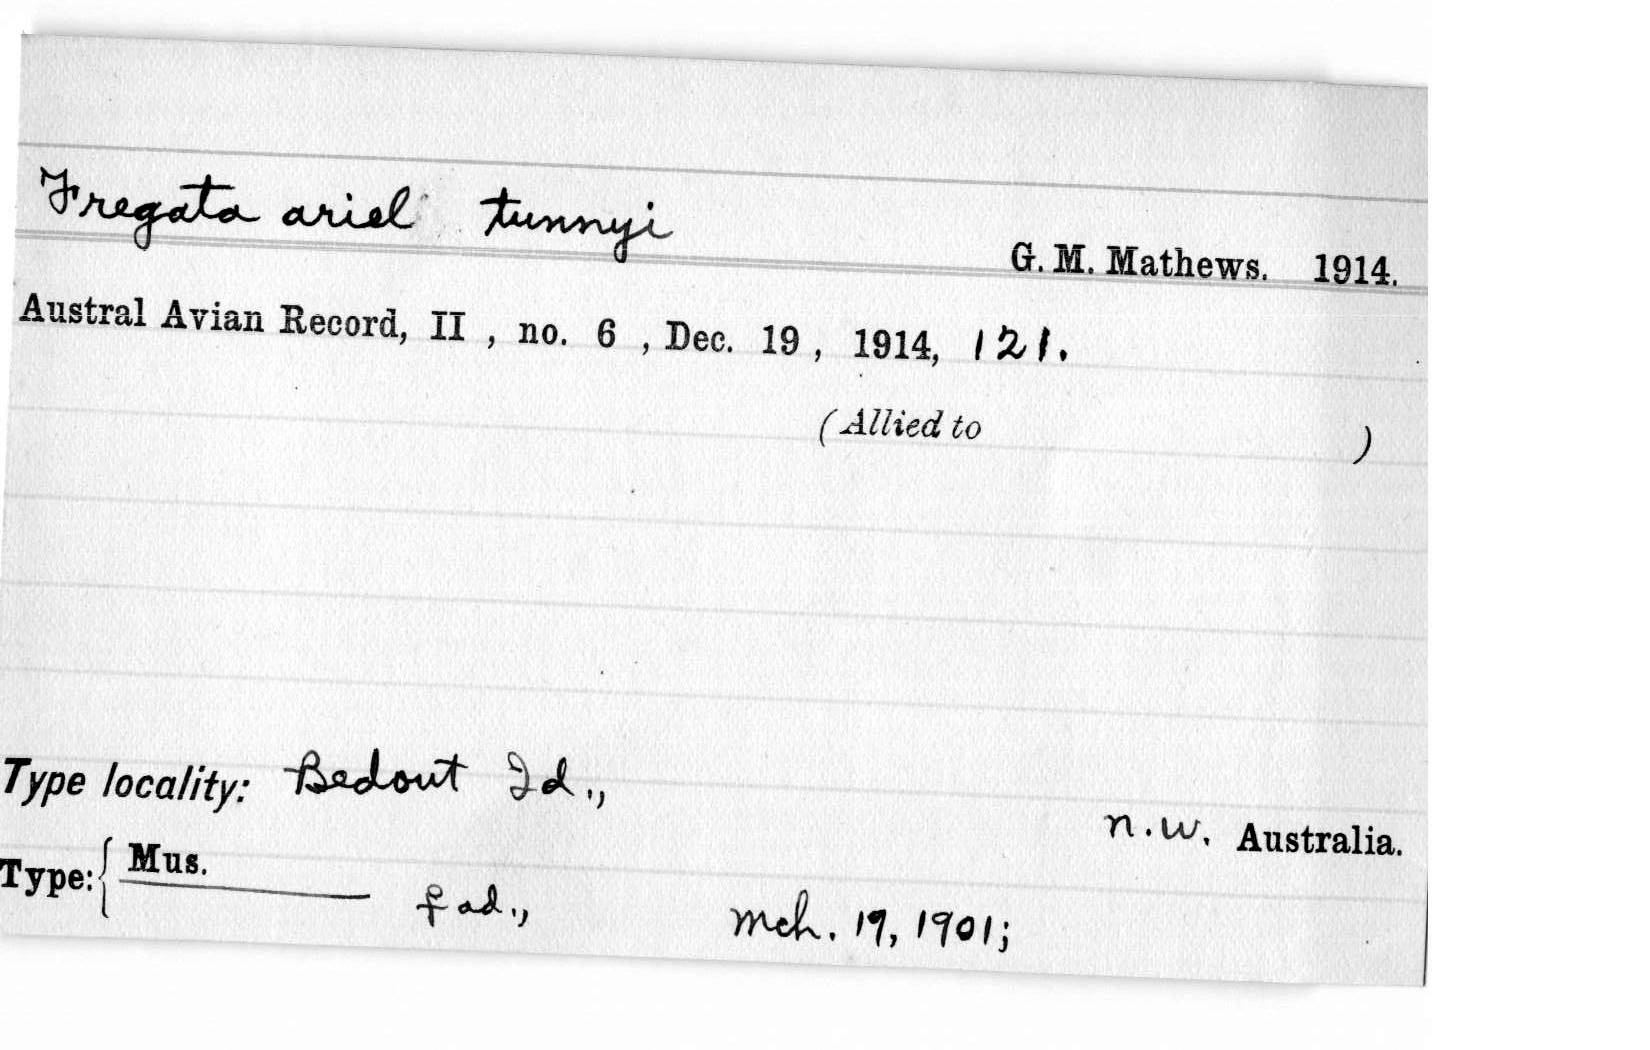 Fregata ariel tunnyi
G. M. Mathews. 1914.
Austral Avian Record, II , no. 6 , Dec. 19 , 1914, 121.
(Allied to )
Type locality: Bedout Id.,
n.w. Australia.
Type: { Mus.
♀ ad., Mch. 19, 1901;